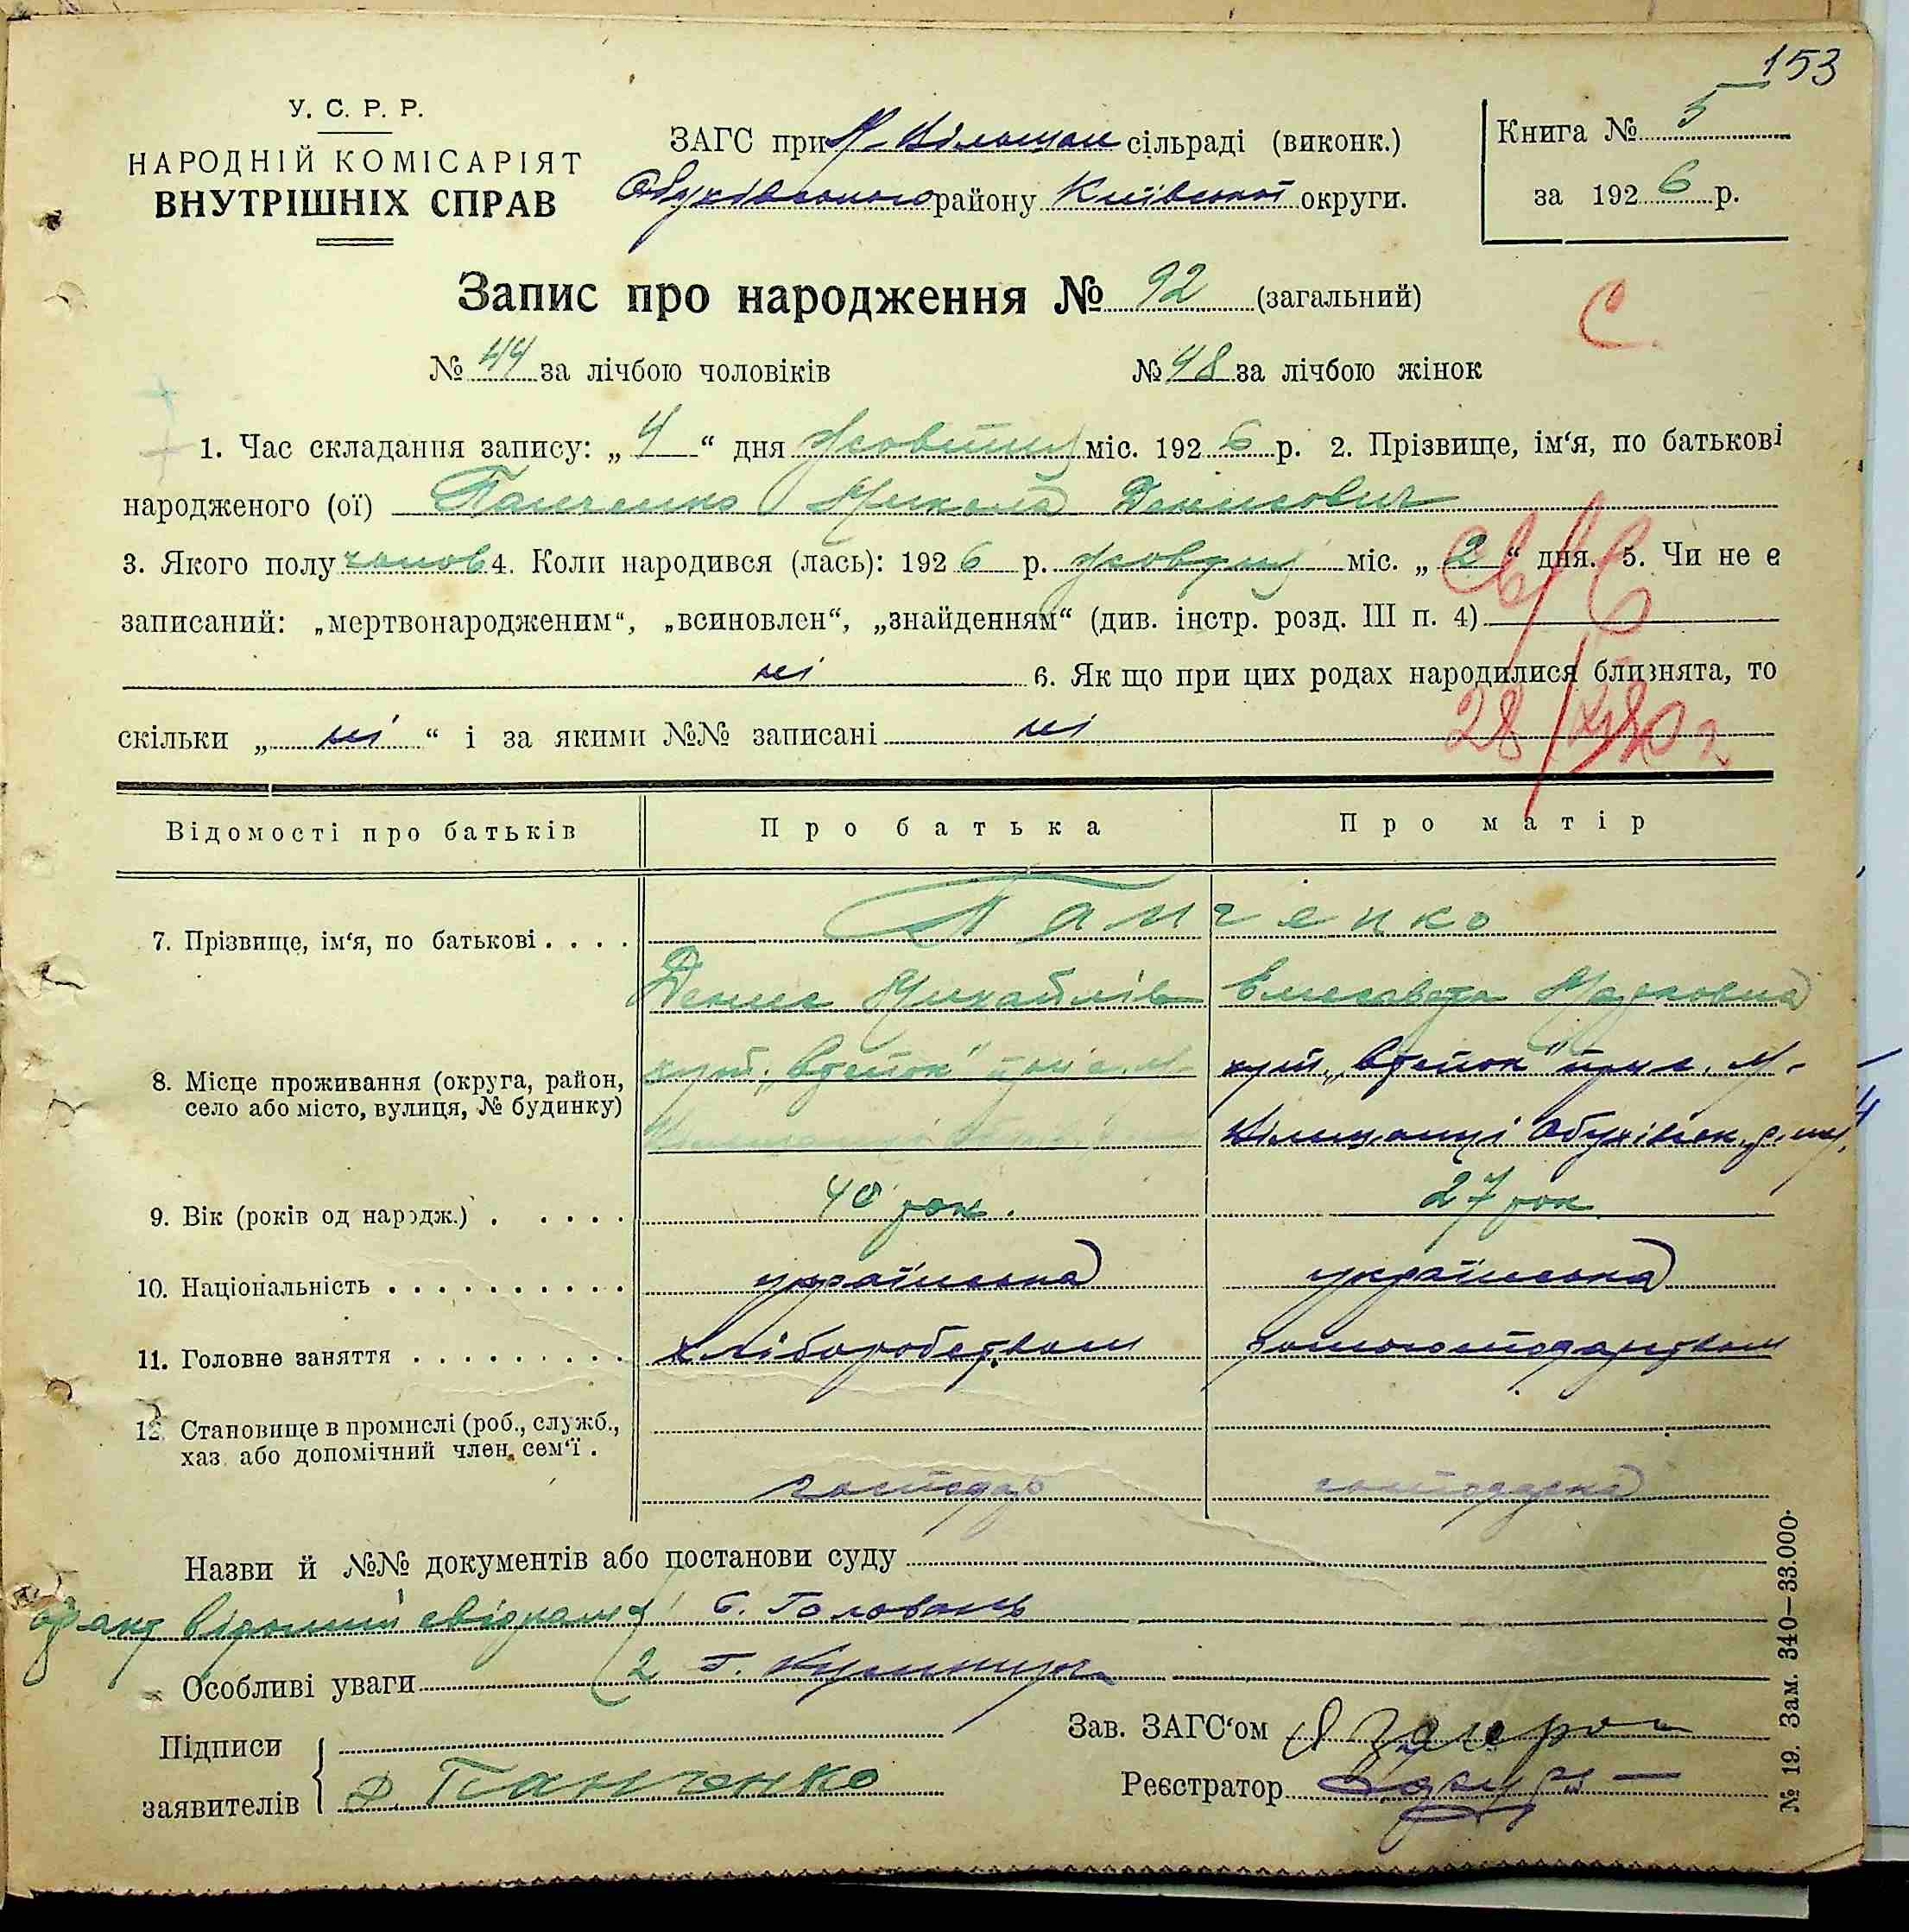 153
У. С. Р. Р.
НАРОДНІЙ КОМІСАРІЯТ
ВНУТРІШНІХ СПРАВ
ЗАГС при М-Вільшан сільраді (виконк.)
Обухівського району Київської округи.
Книга № 5
за 1926 р.
Запис про народження № 92 (загальний)
С
№ 44 за лічбою чоловіків № 48 за лічбою жінок
1. Час складання запису: „4“ дня жовтня міс. 1926 р. 2. Прізвище, ім‘я, по батькові
народженого (ої) Панченко Микола Денисович
3. Якого полу чолов 4. Коли народився (лась): 1926 р. жовтня міс. „2“ дня. 5. Чи не є
записаний: „мертвонародженим“, „всиновлен“, „знайденням“ (див. інстр. розд. III п. 4)
ні 6. Як що при цих родах народилися близнята, то
скільки „ні“ і за якими №№ записані ні
28
Відомості про батьків Про батька Про матір
7. Прізвище, ім‘я, по батькові . . . . Панченко
Денис Михайлів Елисавета Марковна
8. Місце проживання (округа, район, село або місто, вулиця, № будинку)
хут. при с. М- хут. при с. М-
Вільшанці Обухівськ. р-ну
9. Вік (років од нардж.) . . . . . 40 рок. 27 рок
10. Національність . . . . . . . . . . українська українська
11. Головне заняття . . . . . . . . . хліборобством домогосподарством
12. Становище в промислі (роб., служб., хаз. або допомічний член сем‘ї .
господар господарка
Назви й №№ документів або постанови суду
факт відомий свідкам 1 Головань
Особливі уваги 2 Г.
Підписи заявителів
Д. Панченко
Зав. ЗАГС‘ом
Реєстратор
№ 19. Зам. 340–33.000.